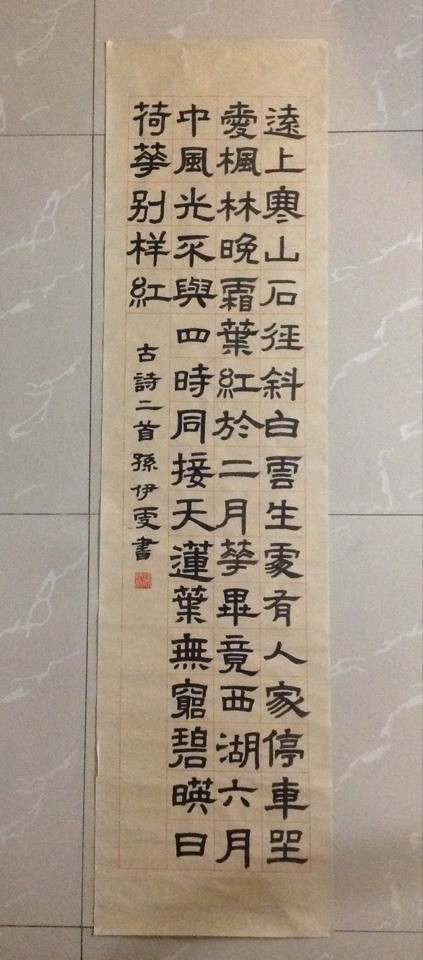 遠上寒山石徑斜白雲生處有人家停車坐
愛楓林晚霜葉紅於二月華畢竟西湖六月
中風光不與四時同接天蓮葉無窮碧暎日
荷華别样紅
古詩二首孫伊雯書